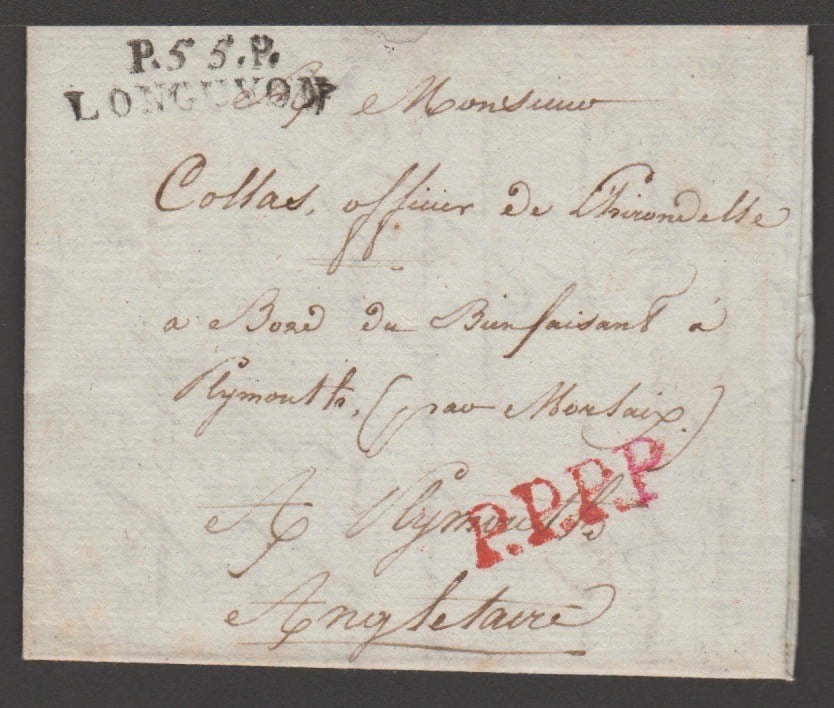 P.55.P.
LONGUYON
A Monsieur
Collas, officier de L'hirondelle
a Bord du Bienfaisant à
Plymouth, (par Morlaix)
P.P.P.P
A Plymouth
Angletaire